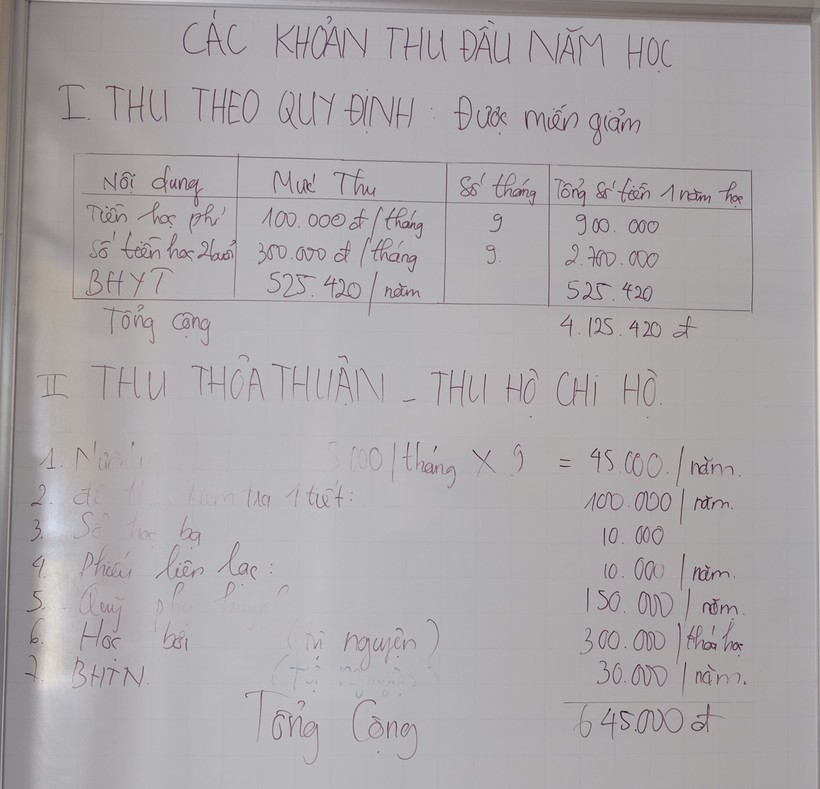 CÁC KHOẢN THU ĐẦU NĂM HỌC
I. THU THEO QUY ĐỊNH : Được miến giảm
Nội dung Mức Thu Số tháng Tổng số tiền 1 năm học
Tiền học phí 100.000đ/tháng 9 900.000
Số tiền học 2buổi 300.000 đ/tháng 9. 2.700.000
BHYT 525.420/năm 525.420
Tổng cộng 4.125.420 đ
II THU THỎA THUẬN - THU HỘ CHI HỘ.
1. 5.000/tháng X 9 = 45.000./năm.
2. tra 1 tiết: 100.000/năm.
3. Sổ học bạ 10.000
4. Phiếu liên lạc: 10.000/năm.
5. Quỹ 150.000/năm.
6. Học bơi (tự nguyện) 300.000/khóa học
7. BHTN. (Tự nguyện) 30.000/năm.
Tổng Cộng 645.000đ